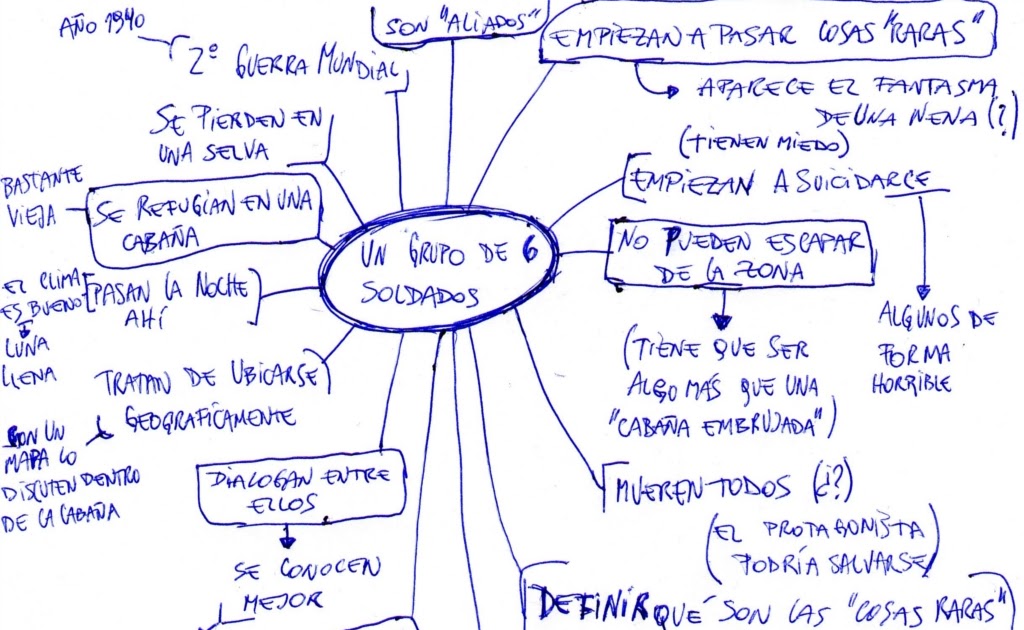 AÑO 1940
2º GUERRA MUNDIAL
SON "ALIADOS"
EMPIEZAN A PASAR COSAS "RARAS"
APARECE EL FANTASMA
DE UNA NENA (?)
SE PIERDEN EN
UNA SELVA
(TIENEN MIEDO)
EMPIEZAN A SUICIDARCE
ALGUNOS DE
FORMA
HORRIBLE
BASTANTE
VIEJA
SE REFUGÍAN EN UNA
CABAÑA
UN GRUPO DE 6
SOLDADOS
NO PUEDEN ESCAPAR
DE LA ZONA
(TIENE QUE SER
ALGO MÁS QUE UNA
"CABAÑA EMBRUJADA")
EL CLIMA
ES BUENO
LUNA
LLENA
PASAN LA NOCHE
AHÍ
TRATAN DE UBICARSE
GEOGRAFICAMENTE
CON UN
MAPA LO
DISCUTEN DENTRO
DE LA CABAÑA
DIALOGAN ENTRE
ELLOS
SE CONOCEN
MEJOR
MUEREN TODOS (¿?)
(EL PROTAGONISTA
PODRÍA SALVARSE)
DEFINIR QUÉ SON LAS "COSAS RARAS"